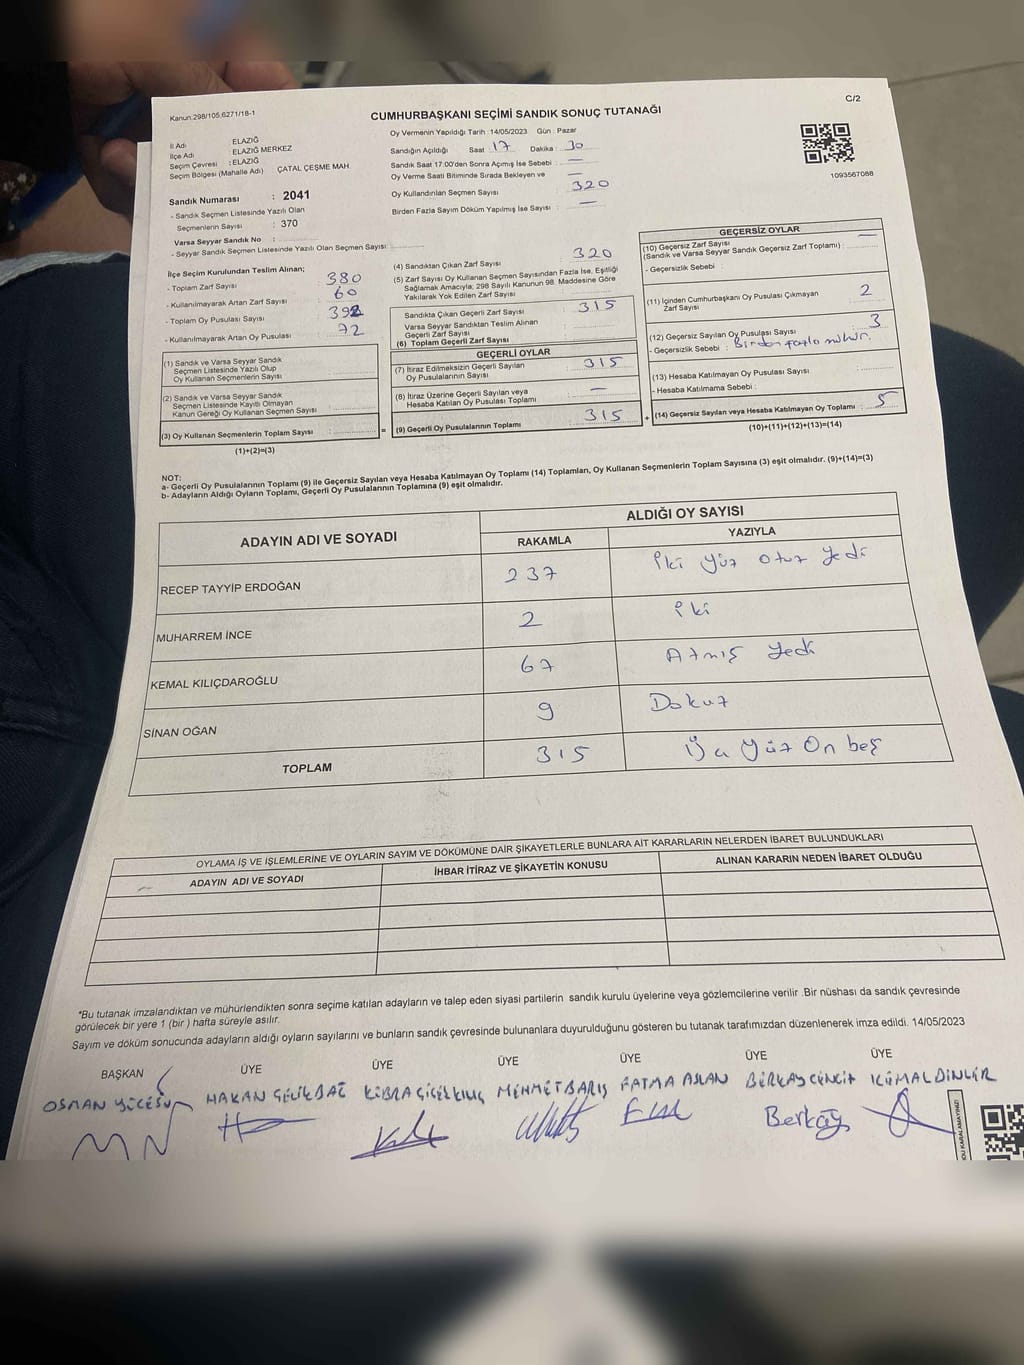 Kanun:298/105;6271/18-1
C/2
CUMHURBAŞKANI SEÇİMİ SANDIK SONUÇ TUTANAĞI
İl Adı : ELAZIĞ
İlçe Adı : ELAZIĞ MERKEZ
Seçim Çevresi : ELAZIĞ
Seçim Bölgesi (Mahalle Adı) ÇATAL ÇEŞME MAH.
Sandık Numarası : 2041
- Sandık Seçmen Listesinde Yazılı Olan
Seçmenlerin Sayısı : 370
Varsa Seyyar Sandık No :
- Seyyar Sandık Seçmen Listesinde Yazılı Olan Seçmen Sayısı:
Oy Vermenin Yapıldığı Tarih :14/05/2023 Gün : Pazar
Sandığın Açıldığı Saat : 17 Dakika : 30
Sandık Saat 17:00'den Sonra Açmış İse Sebebi : —
Oy Verme Saati Bitiminde Sırada Bekleyen ve —
Oy Kullandırılan Seçmen Sayısı 320
Birden Fazla Sayım Döküm Yapılmış İse Sayısı : —
1093567088
İlçe Seçim Kurulundan Teslim Alınan;
- Toplam Zarf Sayısı : 380
- Kullanılmayarak Artan Zarf Sayısı : 60
- Toplam Oy Pusulası Sayısı : 392
- Kullanılmayarak Artan Oy Pusulası : 72
(1) Sandık ve Varsa Seyyar Sandık
Seçmen Listesinde Yazılı Olup
Oy Kullanan Seçmenlerin Sayısı
(2) Sandık ve Varsa Seyyar Sandık
Seçmen Listesinde Kayıtlı Olmayan
Kanun Gereği Oy Kullanan Seçmen Sayısı
(3) Oy Kullanan Seçmenlerin Toplam Sayısı :
(1)+(2)=(3)
=
(4) Sandıktan Çıkan Zarf Sayısı 320
(5) Zarf Sayısı Oy Kullanan Seçmen Sayısından Fazla İse, Eşitliği
Sağlamak Amacıyla; 298 Sayılı Kanunun 98. Maddesine Göre
Yakılarak Yok Edilen Zarf Sayısı
Sandıkta Çıkan Geçerli Zarf Sayısı 315
Varsa Seyyar Sandıktan Teslim Alınan
Geçerli Zarf Sayısı
(6) Toplam Geçerli Zarf Sayısı
GEÇERLİ OYLAR
(7) İtiraz Edilmeksizin Geçerli Sayılan
Oy Pusulalarının Sayısı 315
(8) İtiraz Üzerine Geçerli Sayılan veya
Hesaba Katılan Oy Pusulası Toplamı —
(9) Geçerli Oy Pusulalarının Toplamı 315
+
GEÇERSİZ OYLAR
(10) Geçersiz Zarf Sayısı
(Sandık ve Varsa Seyyar Sandık Geçersiz Zarf Toplamı) : —
- Geçersizlik Sebebi :
(11) İçinden Cumhurbaşkanı Oy Pusulası Çıkmayan
Zarf Sayısı 2
(12) Geçersiz Sayılan Oy Pusulası Sayısı : 3
- Geçersizlik Sebebi : Birden fazla mühür.
(13) Hesaba Katılmayan Oy Pusulası Sayısı
- Hesaba Katılmama Sebebi :
(14) Geçersiz Sayılan veya Hesaba Katılmayan Oy Toplamı : 5
(10)+(11)+(12)+(13)=(14)
NOT:
a- Geçerli Oy Pusulalarının Toplamı (9) ile Geçersiz Sayılan veya Hesaba Katılmayan Oy Toplamı (14) Toplamları, Oy Kullanan Seçmenlerin Toplam Sayısına (3) eşit olmalıdır. (9)+(14)=(3)
b- Adayların Aldığı Oyların Toplamı, Geçerli Oy Pusulalarının Toplamına (9) eşit olmalıdır.
ADAYIN ADI VE SOYADI
ALDIĞI OY SAYISI
RAKAMLA YAZIYLA
RECEP TAYYİP ERDOĞAN 237 iki yüz otuz yedi
MUHARREM İNCE 2 iki
KEMAL KILIÇDAROĞLU 67 Atmış yedi
SİNAN OĞAN 9 Dokuz
TOPLAM 315 Üç yüz On beş
OYLAMA İŞ VE İŞLEMLERİNE VE OYLARIN SAYIM VE DÖKÜMÜNE DAİR ŞİKAYETLERLE BUNLARA AİT KARARLARIN NELERDEN İBARET BULUNDUKLARI
ADAYIN ADI VE SOYADI İHBAR İTİRAZ VE ŞİKAYETİN KONUSU ALINAN KARARIN NEDEN İBARET OLDUĞU
*Bu tutanak imzalandıktan ve mühürlendikten sonra seçime katılan adayların ve talep eden siyasi partilerin sandık kurulu üyelerine veya gözlemcilerine verilir .Bir nüshası da sandık çevresinde
görülecek bir yere 1 (bir ) hafta süreyle asılır.
Sayım ve döküm sonucunda adayların aldığı oyların sayılarını ve bunların sandık çevresinde bulunanlara duyurulduğunu gösteren bu tutanak tarafımızdan düzenlenerek imza edildi. 14/05/2023
BAŞKAN ÜYE ÜYE ÜYE ÜYE ÜYE ÜYE
OSMAN HAKAN KÜBRA MEHMET BARIŞ FATMA ASLAN BERKAY KEMAL DİNLER
Berkay